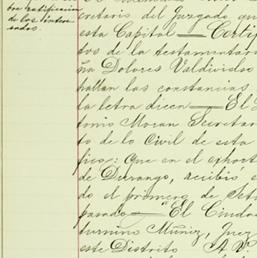 bre ratificación
de los intere
sados.
cretario del Juzgado qu
esta Capital — Certif
tos de la testamentar
ña Dolores Valdivielso
hallan las constancias
la letra dicen — El
tonio Moran Secretar
to de lo Civil de esta
fica: Que en el exhort
de Durango, recibió e
do el primero de
pasado — El Ciuda
turnino Muñiz, Juez
este Distrito